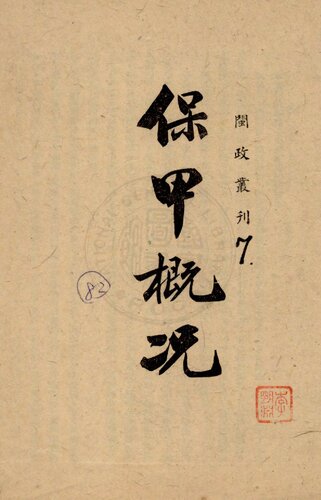 閩政叢刊7.
保甲概况
82